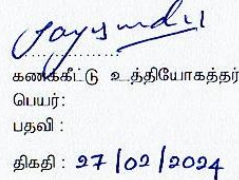 கணக்கீட்டு உத்தியோகத்தர்
பெயர்:
பதவி :
திகதி : 27/02/2024